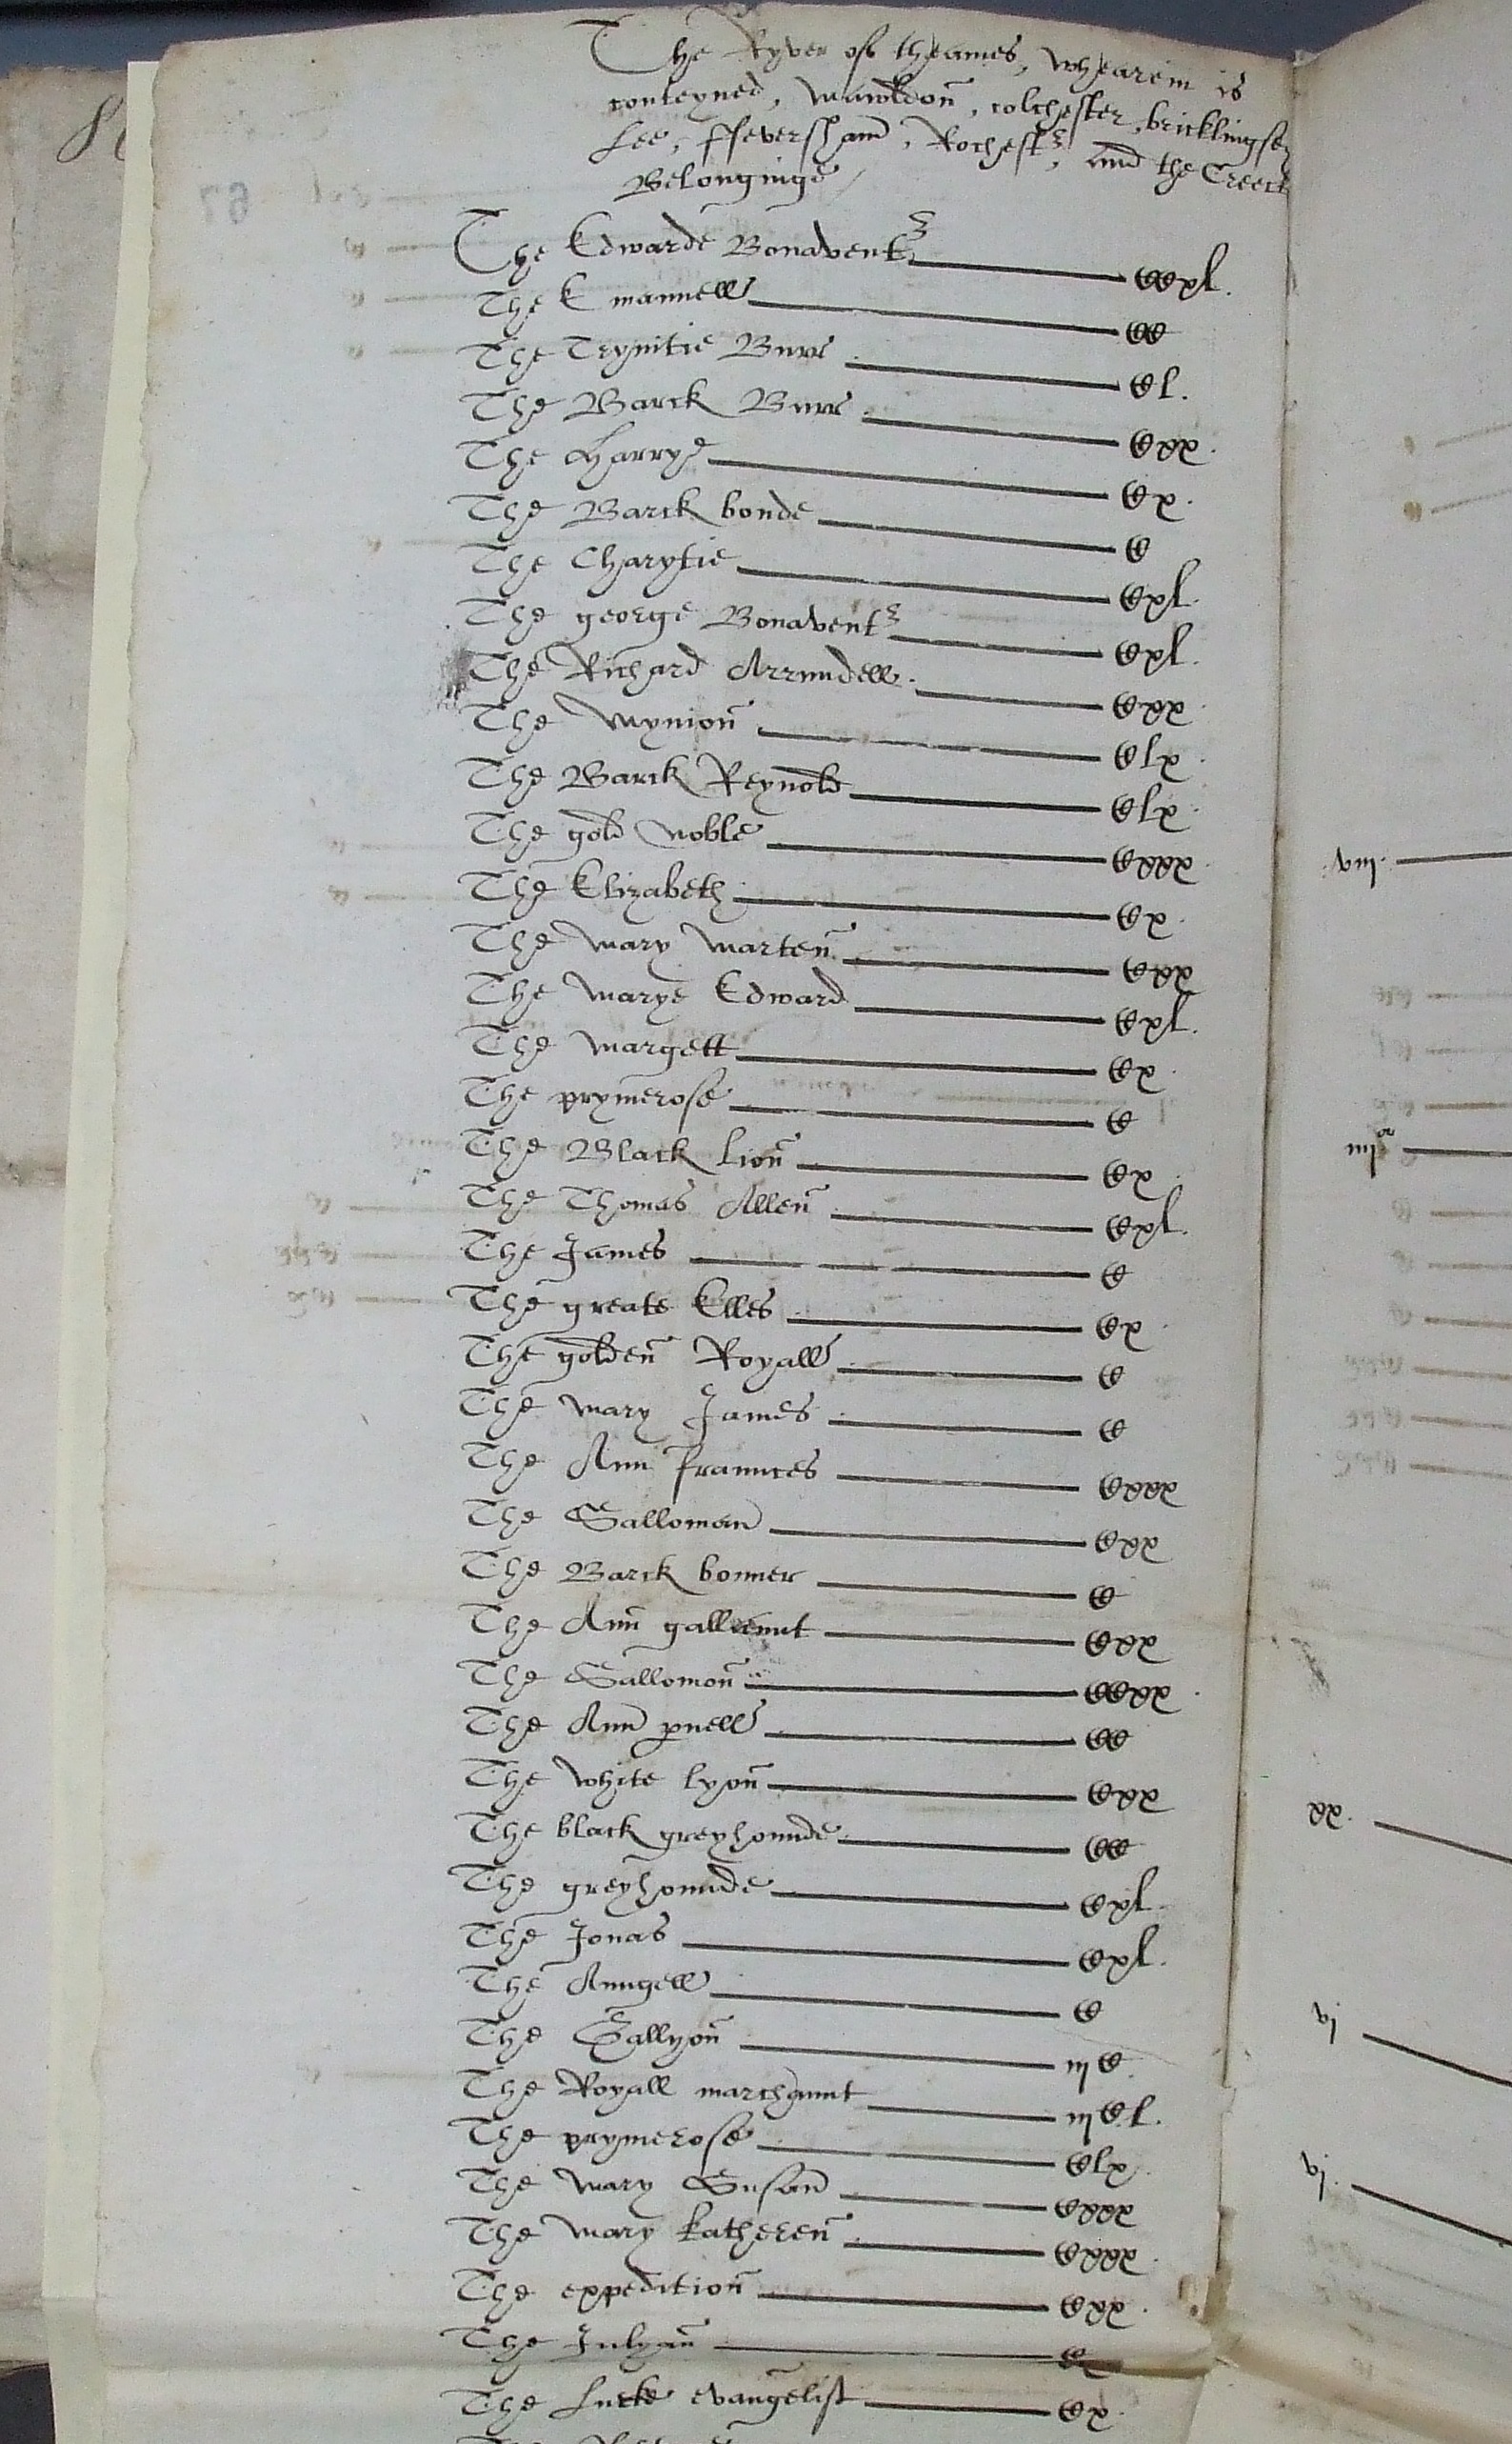 The Ryver of theames, whearein is
conteyned, Mawldon, colchester, bricklingsey
Lee, ffeversham, Rochest, and the Creeck
Belonginge
The Edwarde Bonavent CCxl.
The Emanuell CC
The Trynitie Burr Cl.
The Barck Burr Cxx.
The Harrye Cx.
The Barck bonde C
The Charytie Cxl.
The george Bonavent Cxl.
The Richard Arrundell. Cxx.
The Mynion Clx.
The Barck Reynold Clx.
The gold noble Cxxx.
The Elizabeth Cx.
The mary marten Cxx
The marye Edward Cxl.
The margett Cx.
The prymerose C
The Black lion Cx.
The Thomas Allen Cxl.
The James C
The greate Elles Cx.
The golden Royall C
The mary James C
The Ann frannces Cxxx
The Salloman Cxx
The Barck bonner C
The Ann gallaunt Cxx
The Sallomon CCxx.
The Ann pnell CC
The white lyon Cxx
The black greyhounde CC
The greyhounde Cxl.
The Jonas Cxl.
The Aungell C
The Gallyon iiiC.
The Royall marchaunt iiiCl.
The prymerose Clx.
The mary Susan Cxxx
The mary katheren Cxxx.
The expedition Cxx.
The Julyan
The Luke evangelist Cx.
viii.
xx.
vi
vi.